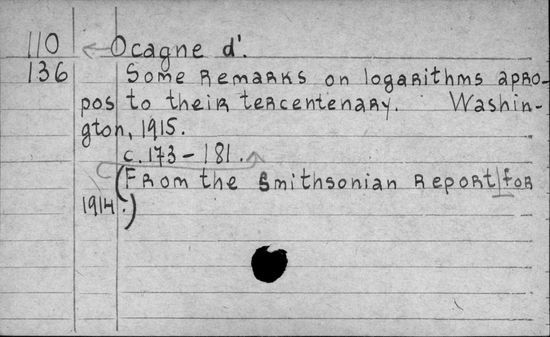 110 Ocagne d'.
136 Some Remarks on logarithms apro-
pos to their tercentenary. Washin-
gton, 1915.
c. 173-181.
(From the Smithsonian Report for
1914.)